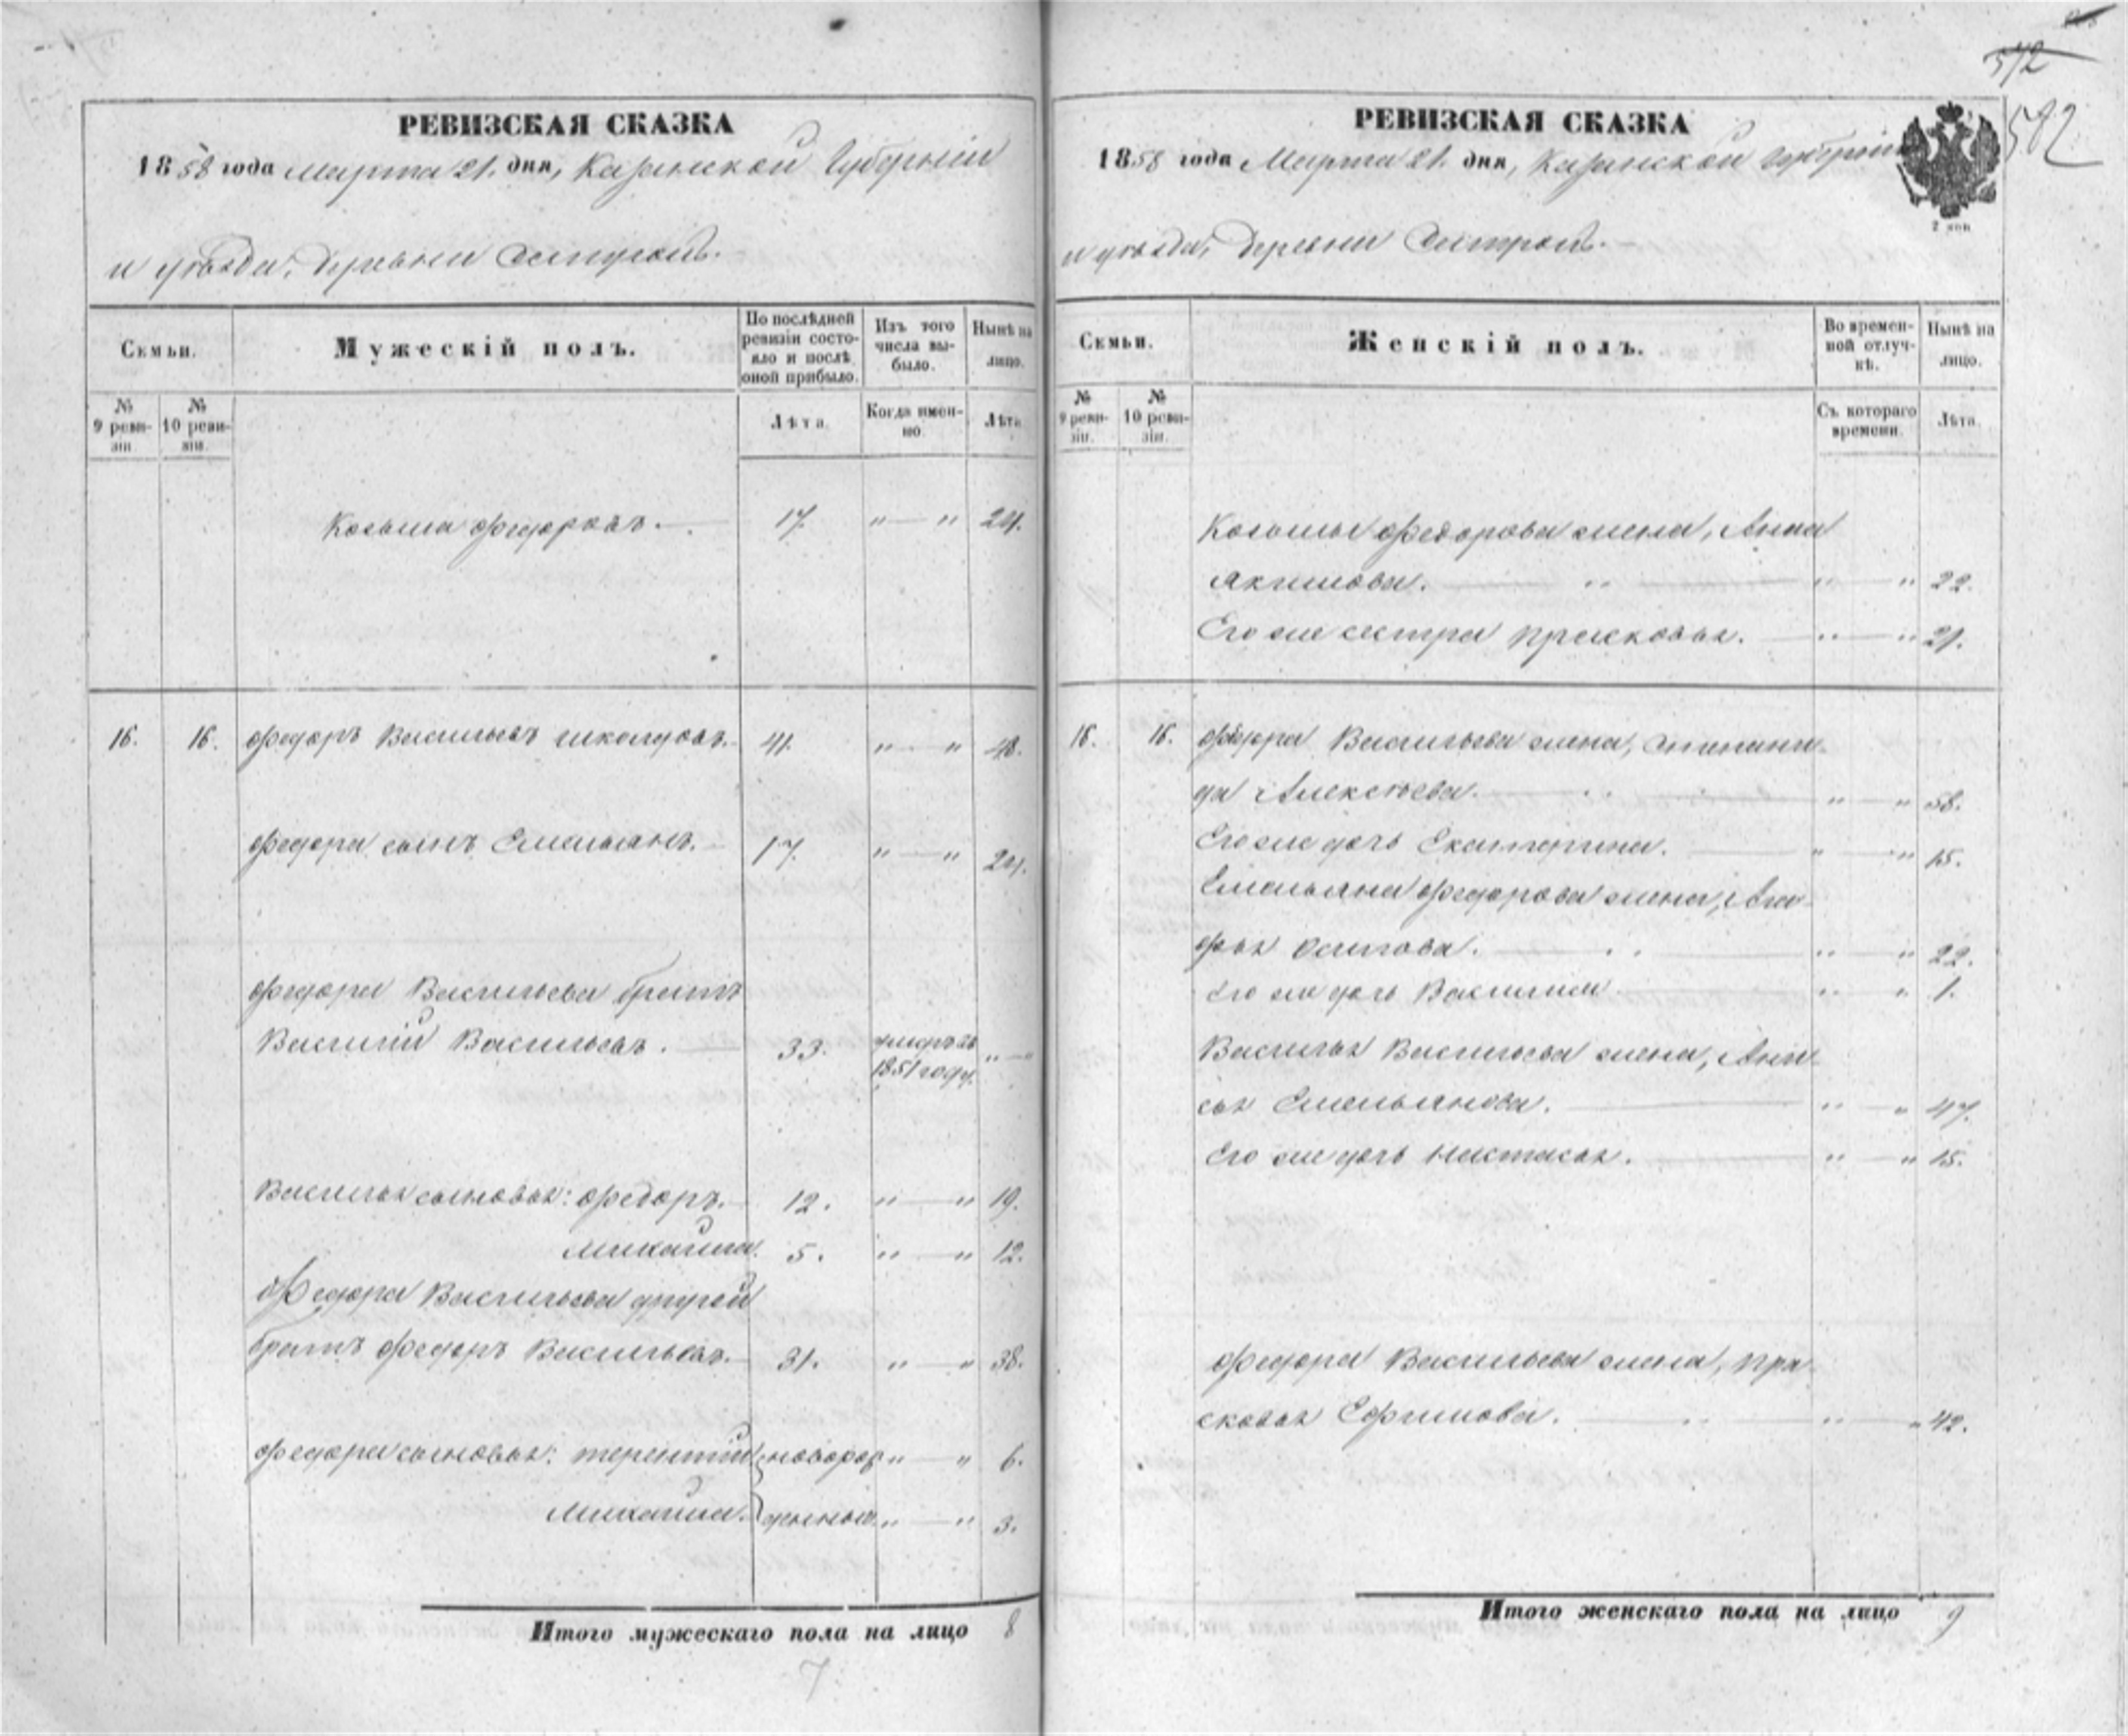 572
582
РЕВИЗСКАЯ СКАЗКА
1858 года Марта 21. дня, Казанской Губерніи
и уѣзда, деревни
Семьи.
Мужескій полъ.
По послѣдней ревизіи состояло и послѣ оной прибыло.
Изъ того числа выбыло.
Нынѣ на лицо.
№ 9 ревизіи.
№ 10 ревизіи.
Лѣта.
Когда именно.
Лѣта.
Козьма Федоровъ. 17. " — " 24.
16. 16. Федоръ Васильевъ 41. " — " 48.
Федора сынъ Емельянъ. 17. " — " 24.
Федора Васильева братъ
Василій Васильевъ. 33. умеръ въ " — "
1851 году.
Василья сыновья: Федоръ. 12. " — " 19.
Михайла. 5. " — " 12.
Федора Васильева другой
братъ Федоръ Васильевъ. 31. " — " 38.
Федора сыновья: Терентій новорож " — " 6.
Михайла. денныя. " — " 3.
Итого мужескаго пола на лицо 8
7
РЕВИЗСКАЯ СКАЗКА
1858 года Марта 21. дня, Казанской Губерніи
2 коп
и уѣзда, деревни
Семьи.
Женскій полъ.
Во временной отлучкѣ.
Нынѣ на лицо.
№ 9 ревизіи.
№ 10 ревизіи.
Съ котораго времени.
Лѣта.
Козьмы Федорова жена, Анна
Акимова. " — " 22.
Его же сестра Прасковья. " — " 21.
16. 16. Федора Васильева жена, Степани-
да Алексѣева. " — " 58.
Его же дочь Екатерина. " — " 15.
Емельяна Федорова жена, Ага-
фья Осипова. " — " 22.
Его же дочь " — " 1.
Василья Васильева жена, Ани-
сья Емельянова. " — " 47.
Его же дочь Настасья. " — " 15.
Федора Васильева жена, Пра-
сковья Ефимова. " — " 42.
Итого женскаго пола на лицо 9